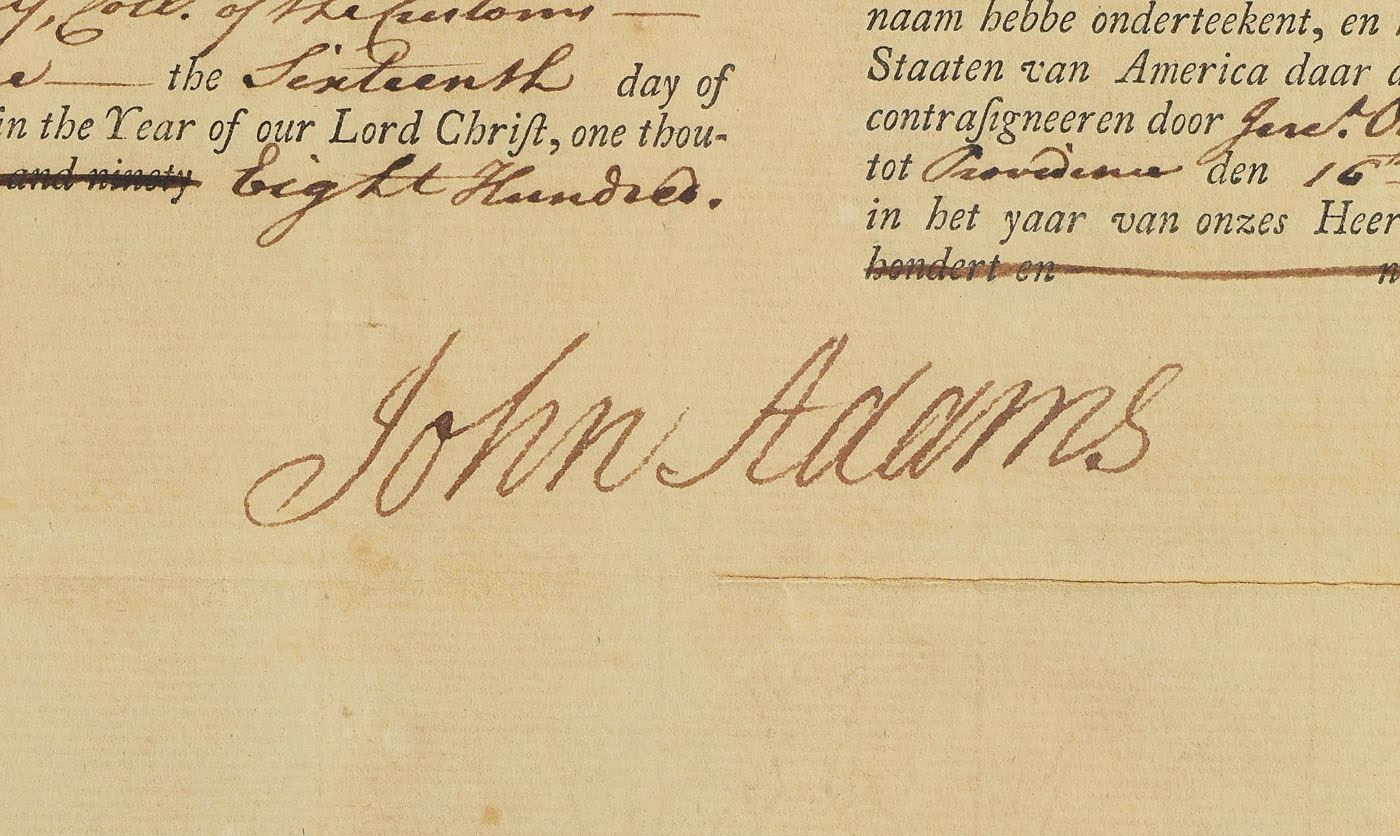 Coll. of the Customs —
the Sixteenth day of
in the Year of our Lord Chriſt, one thou-
and ninety Eight Hundred.
naam hebbe onderteekent, en
Staaten van America daar
contraſigneeren door Jere.
tot Providence den 16th
in het yaar van onzes Heer
hondert en n
John Adams